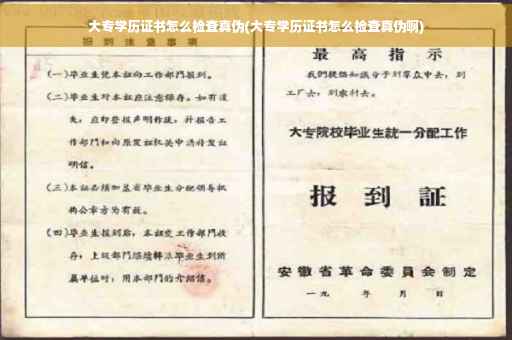 大专学历证书怎么检查真伪(大专学历证书怎么检查真伪啊)
报到注意事项
(一)毕业生凭本证向工作部门报到。
(二)毕业生对本证应注意保存。如有遗
失，应即登报声明作废，并报告工
作部门和向原发证机关申请补发证
明信。
(三)本证必须加盖省毕业生分配领导机
构公章方为有效。
(四)毕业生报到后，本证交工作部门收
存，上级部门继续转派毕业生到所
属单位时，用本部门的介绍信。
最高指示
我们提倡知识分子到群众中去，到
工厂去，到农村去。
大专院校毕业生统一分配工作
报到证
安徽省革命委员会制定
一九 年 月 日